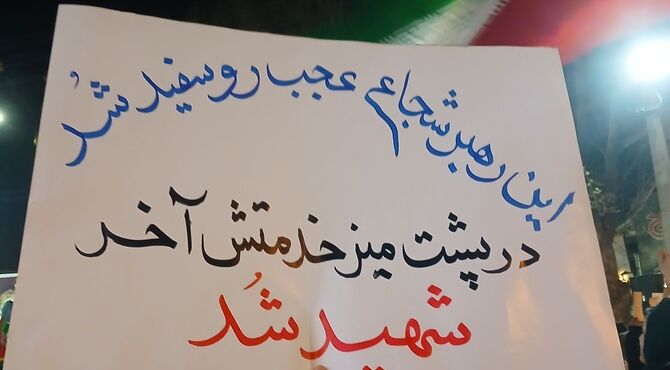 این رهبر شجاع عجب رو سفید شُد
در پشت میز خدمتش آخر
شهید شُد